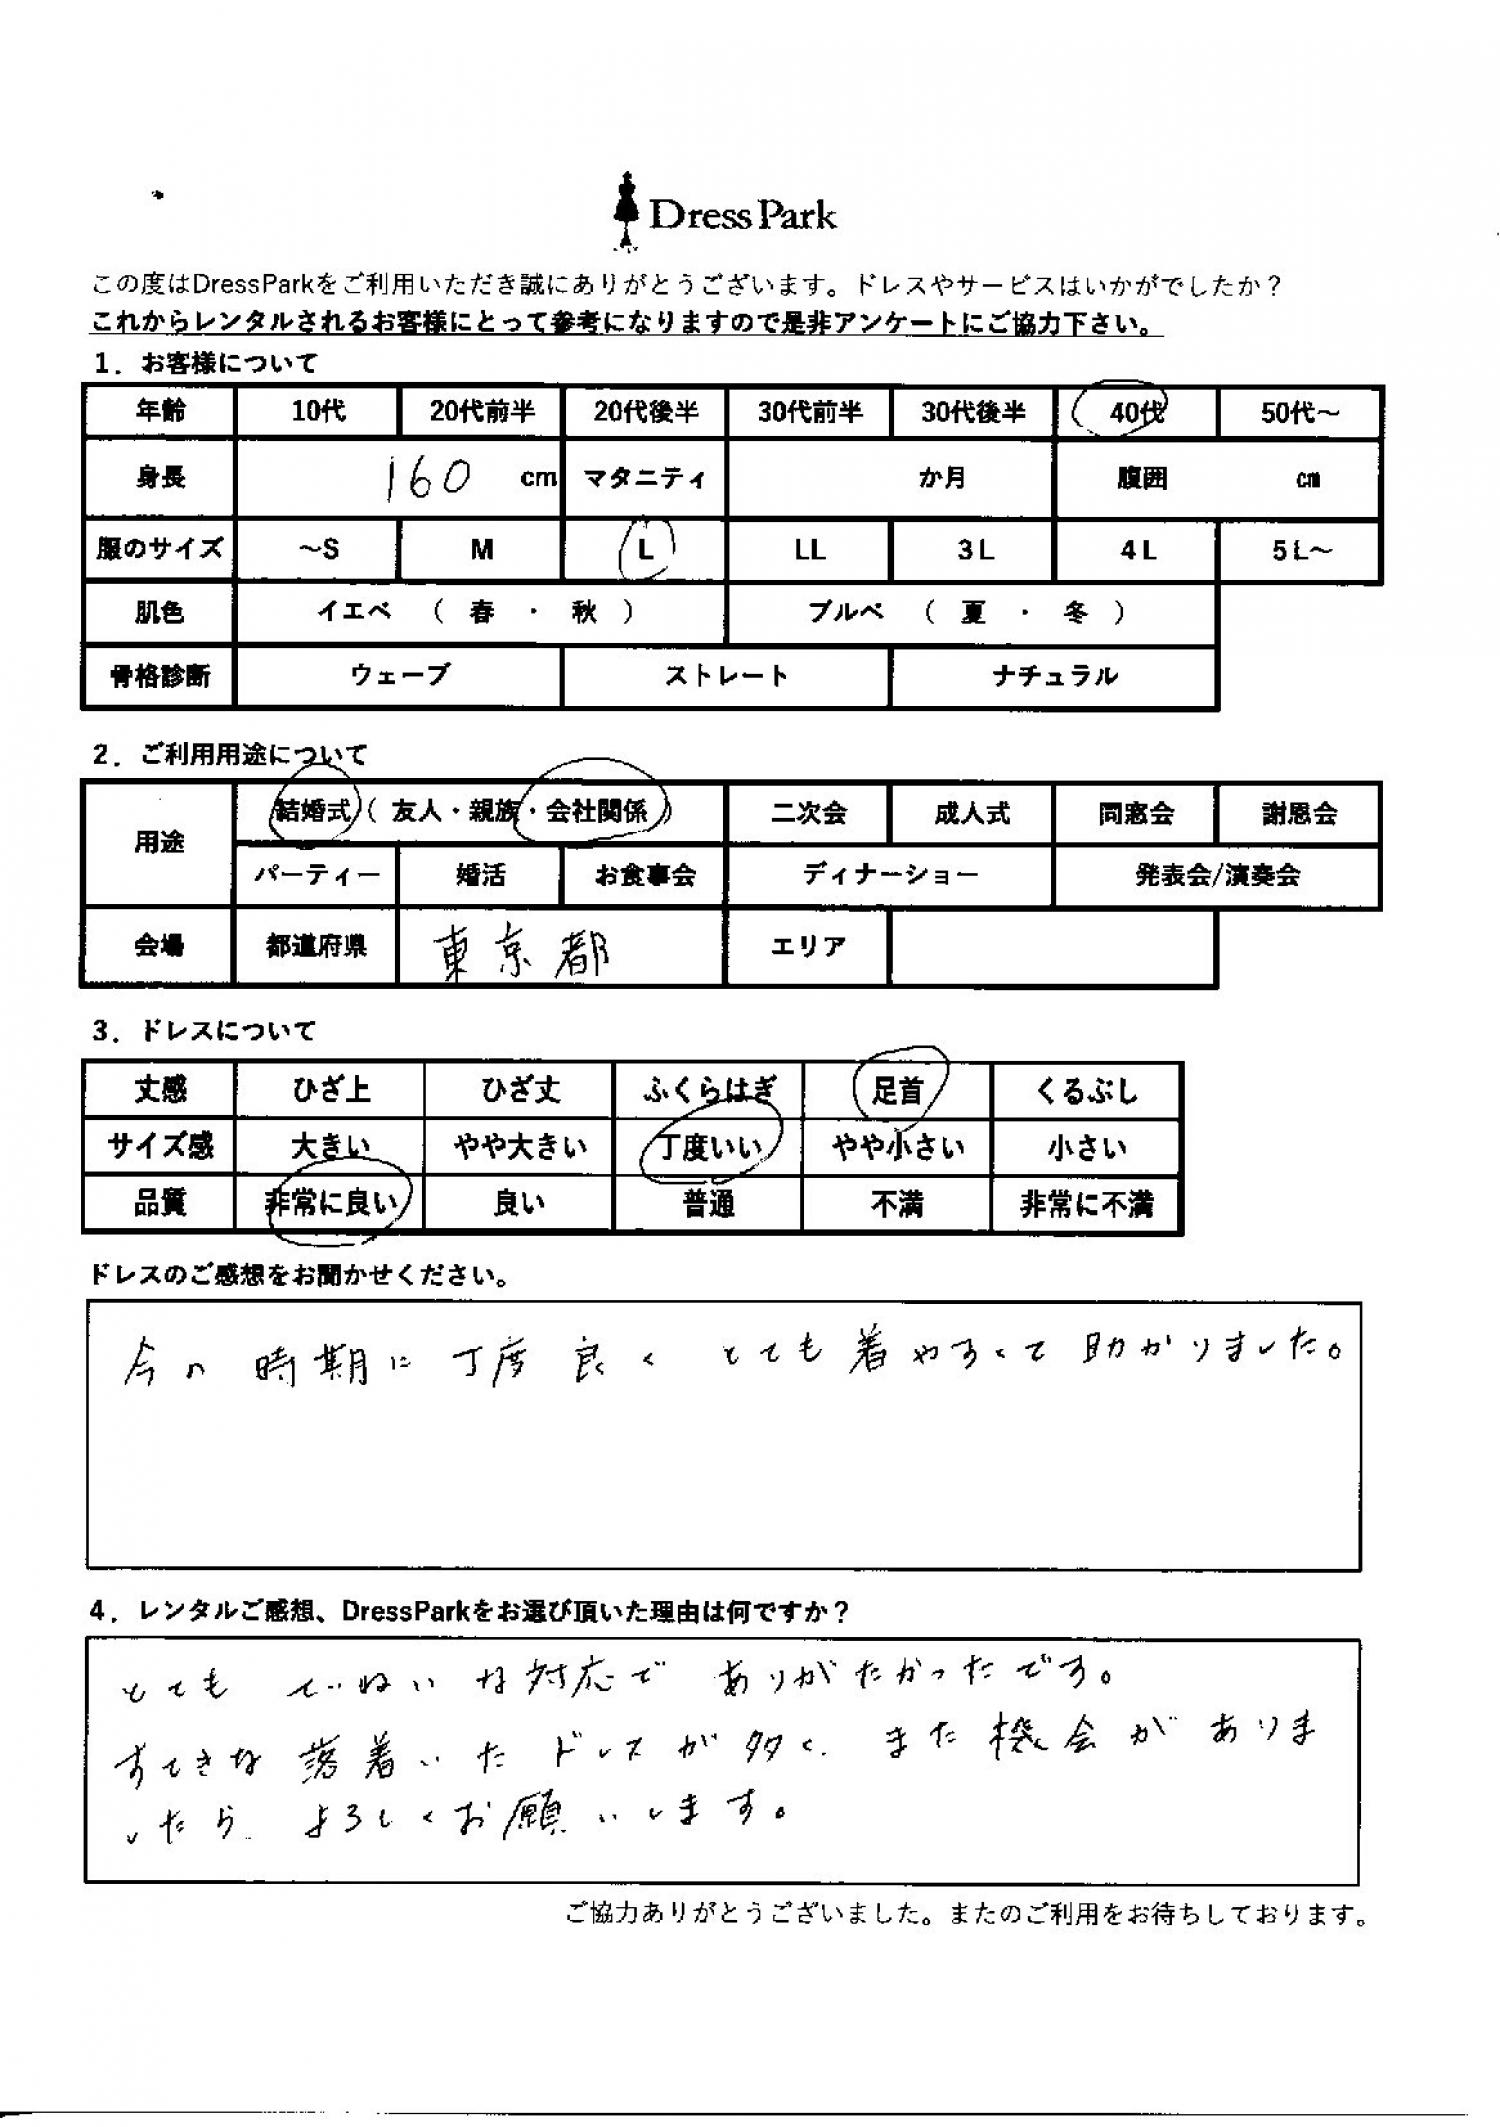 Dress Park
この度はDressParkをご利用いただき誠にありがとうございます。ドレスやサービスはいかがでしたか？
これからレンタルされるお客様にとって参考になりますので是非アンケートにご協力下さい。
1．お客様について
年齢 10代 20代前半 20代後半 30代前半 30代後半 40代 50代～
身長 160 cm マタニティ か月 腹囲 cm
服のサイズ ～S M L LL 3L 4L 5L～
肌色 イエベ （ 春 ・ 秋 ） ブルベ （ 夏 ・ 冬 ）
骨格診断 ウェーブ ストレート ナチュラル
2．ご利用用途について
用途 結婚式（ 友人・親族・会社関係） 二次会 成人式 同窓会 謝恩会
パーティー 婚活 お食事会 ディナーショー 発表会/演奏会
会場 都道府県 東京都 エリア
3．ドレスについて
丈感 ひざ上 ひざ丈 ふくらはぎ 足首 くるぶし
サイズ感 大きい やや大きい 丁度いい やや小さい 小さい
品質 非常に良い 良い 普通 不満 非常に不満
ドレスのご感想をお聞かせください。
今の時期に丁度良く とても着やすくて助かりました。
4．レンタルご感想、DressParkをお選び頂いた理由は何ですか？
とても ていねいな対応で ありがたかったです。
すてきな落着いたドレスが多く、また機会がありま
したら、よろしくお願いします。
ご協力ありがとうございました。またのご利用をお待ちしております。